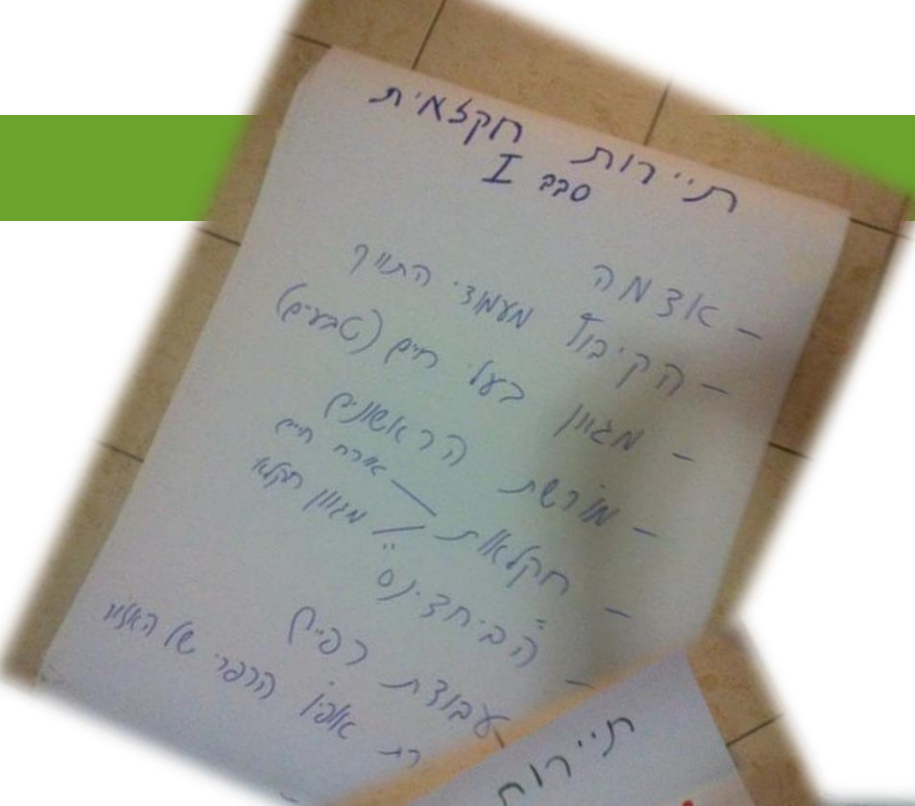 תיירות חקלאית
סבב I
- אדמה
- הקיבוץ מעמודי התווך
- מגוון בעלי חיים (טבעים)
- מורשת הראשונים
- חקלאות – אורח חיים
מגוון חקלאי
עבודת כפיים
אופיו הכפרי של האזור
תיירות